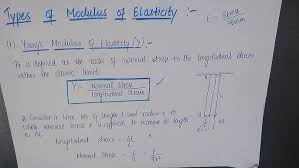 Types of Modulus of Elasticity :-
E = stress
strain
(1) Young's Modulus of Elasticity (Y) -
It is defined as the ratio of normal stress to the longitudinal strain
within the elastic limit.
Y = Normal Stress
Longitudinal Strain
Consider a wire of length l and radius r to
which normal force F is applied to increase its length
to Δl
longitudinal strain = Δl
l
Normal stress = F = F
πr²